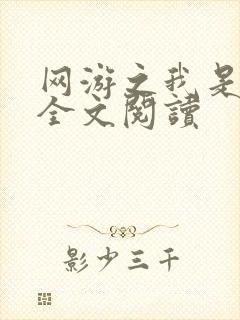 网游之我是
全文閱讀
影少三千